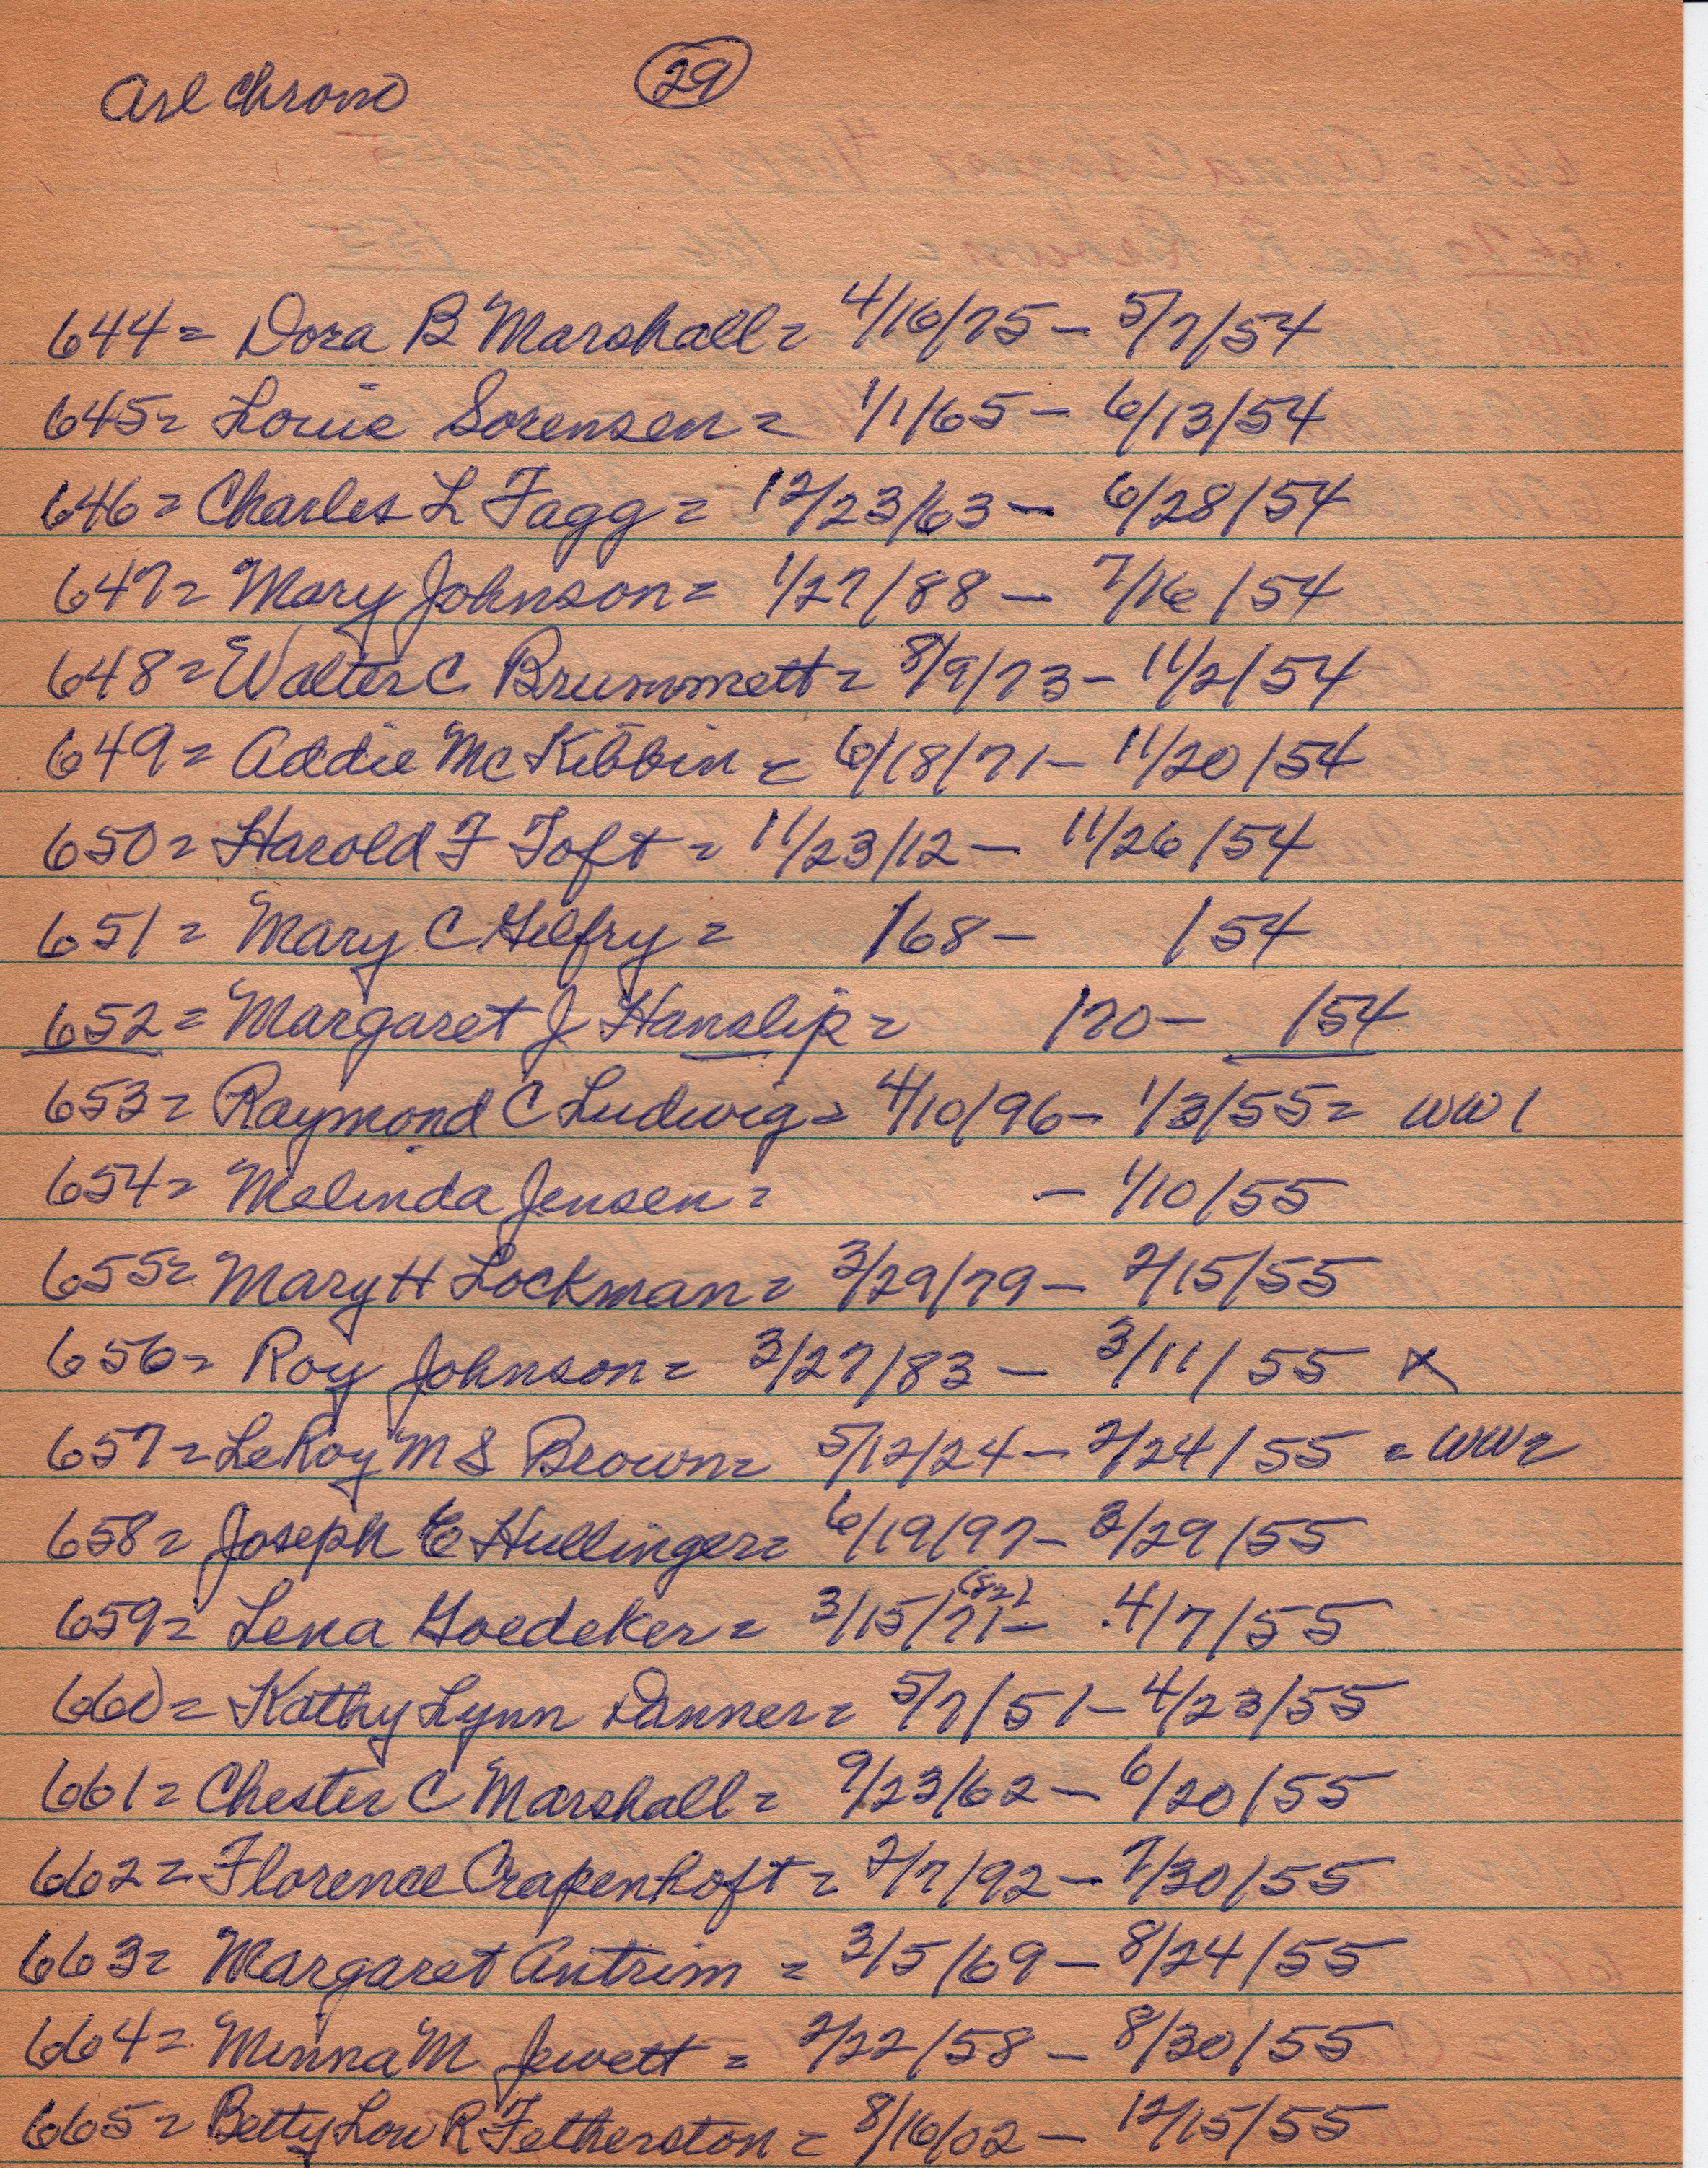 Arl Chrono 29
644 = Dora B Marshall = 4/16/75 - 5/7/54
645 = Louie Sorensen = 1/1/65 - 6/13/54
646 = Charles L Fagg = 12/23/63 - 6/28/54
647 = Mary Johnson = 1/27/88 - 7/16/54
648 = Walter C Brummett = 8/9/73 - 11/2/54
649 = Addie McKibbin = 6/18/71 - 11/20/54
650 = Harold F Toft = 11/23/12 - 11/26/54
651 = Mary C Gilfry = /68 - /54
652 = Margaret J Hanslip = /70 - /54
653 = Raymond C Ludwig = 4/10/96 - 1/3/55 = WW1
654 = Melinda Jensen = - 1/10/55
655 = Mary H Lockman = 3/29/79 - 2/15/55
656 = Roy Johnson = 3/27/83 - 3/11/55 X
657 = LeRoy M S Brown = 5/12/24 - 2/24/55 = WW2
658 = Joseph E Hullinger = 6/19/97 - 3/29/55
659 = Lena Goedeker = 3/15/71 - 4/7/55
660 = Kathy Lynn Danner = 5/7/51 - 4/23/55
661 = Chester C Marshall = 9/23/62 - 6/20/55
662 = Florence Crapenhoft = 2/7/92 - 7/30/55
663 = Margaret Antrim = 3/5/69 - 8/24/55
664 = Minna M Jewett = 2/22/58 - 8/30/55
665 = Betty Lou R Fetherston = 8/16/02 - 12/15/55